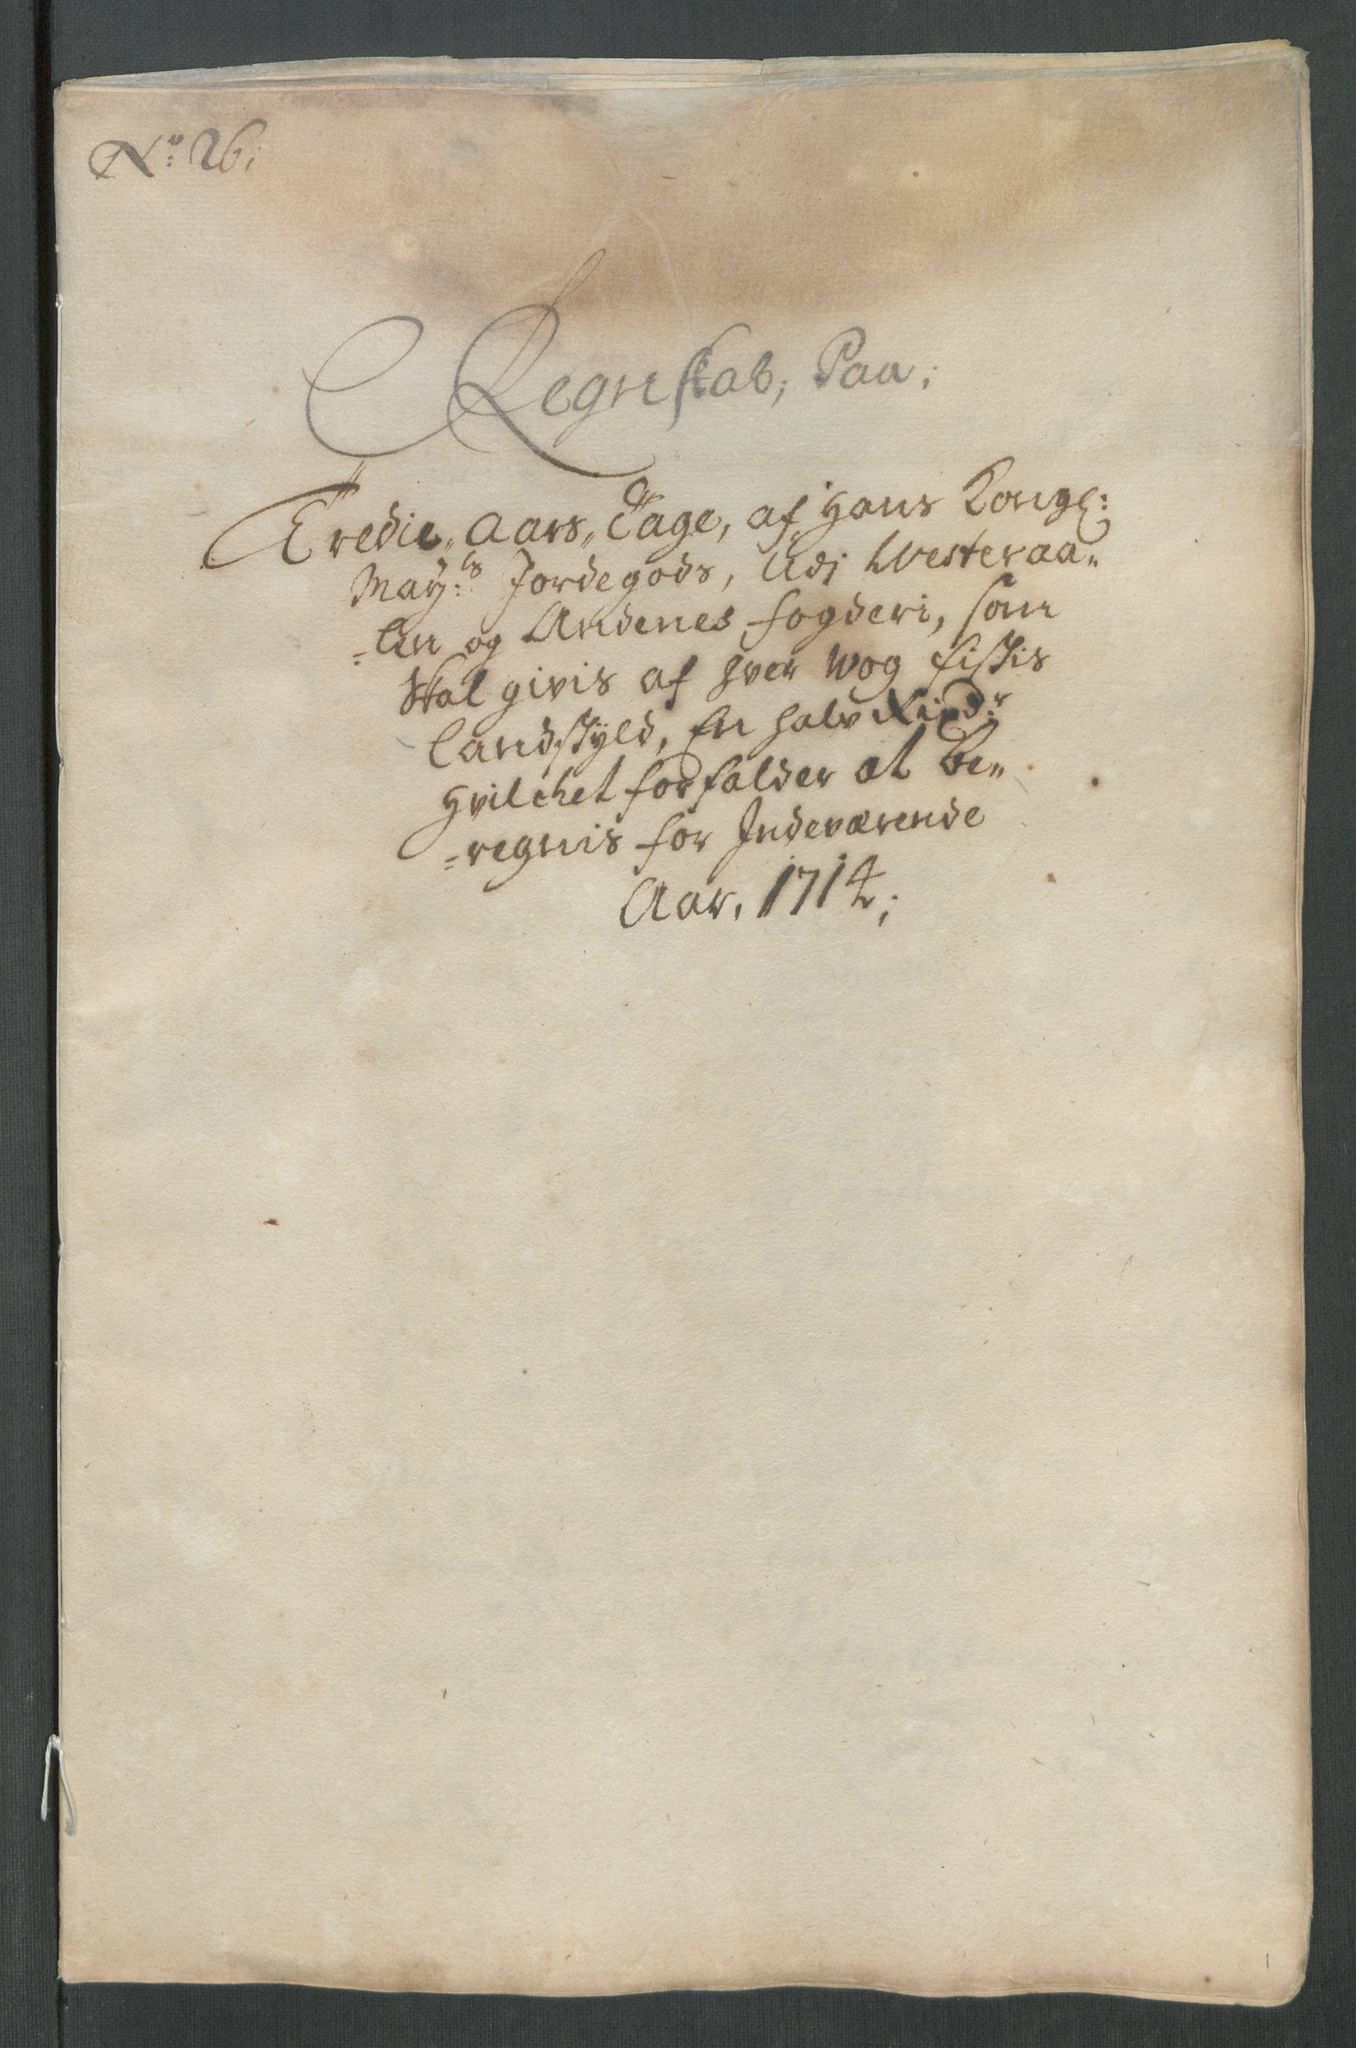 No: 26;
Regnskab; Paa;
Tredie, Aars, Tage, af Hans Kongl:
May:ts Jordegods, Udj Westeraa„
=len og Andenes fogderi, som
Skal givis af hver wog fiskis
Landskyld, En halv Rixd:r
Hvilchet forfalder at be„
=regnis for Indeværende
Aar, 1714;
1